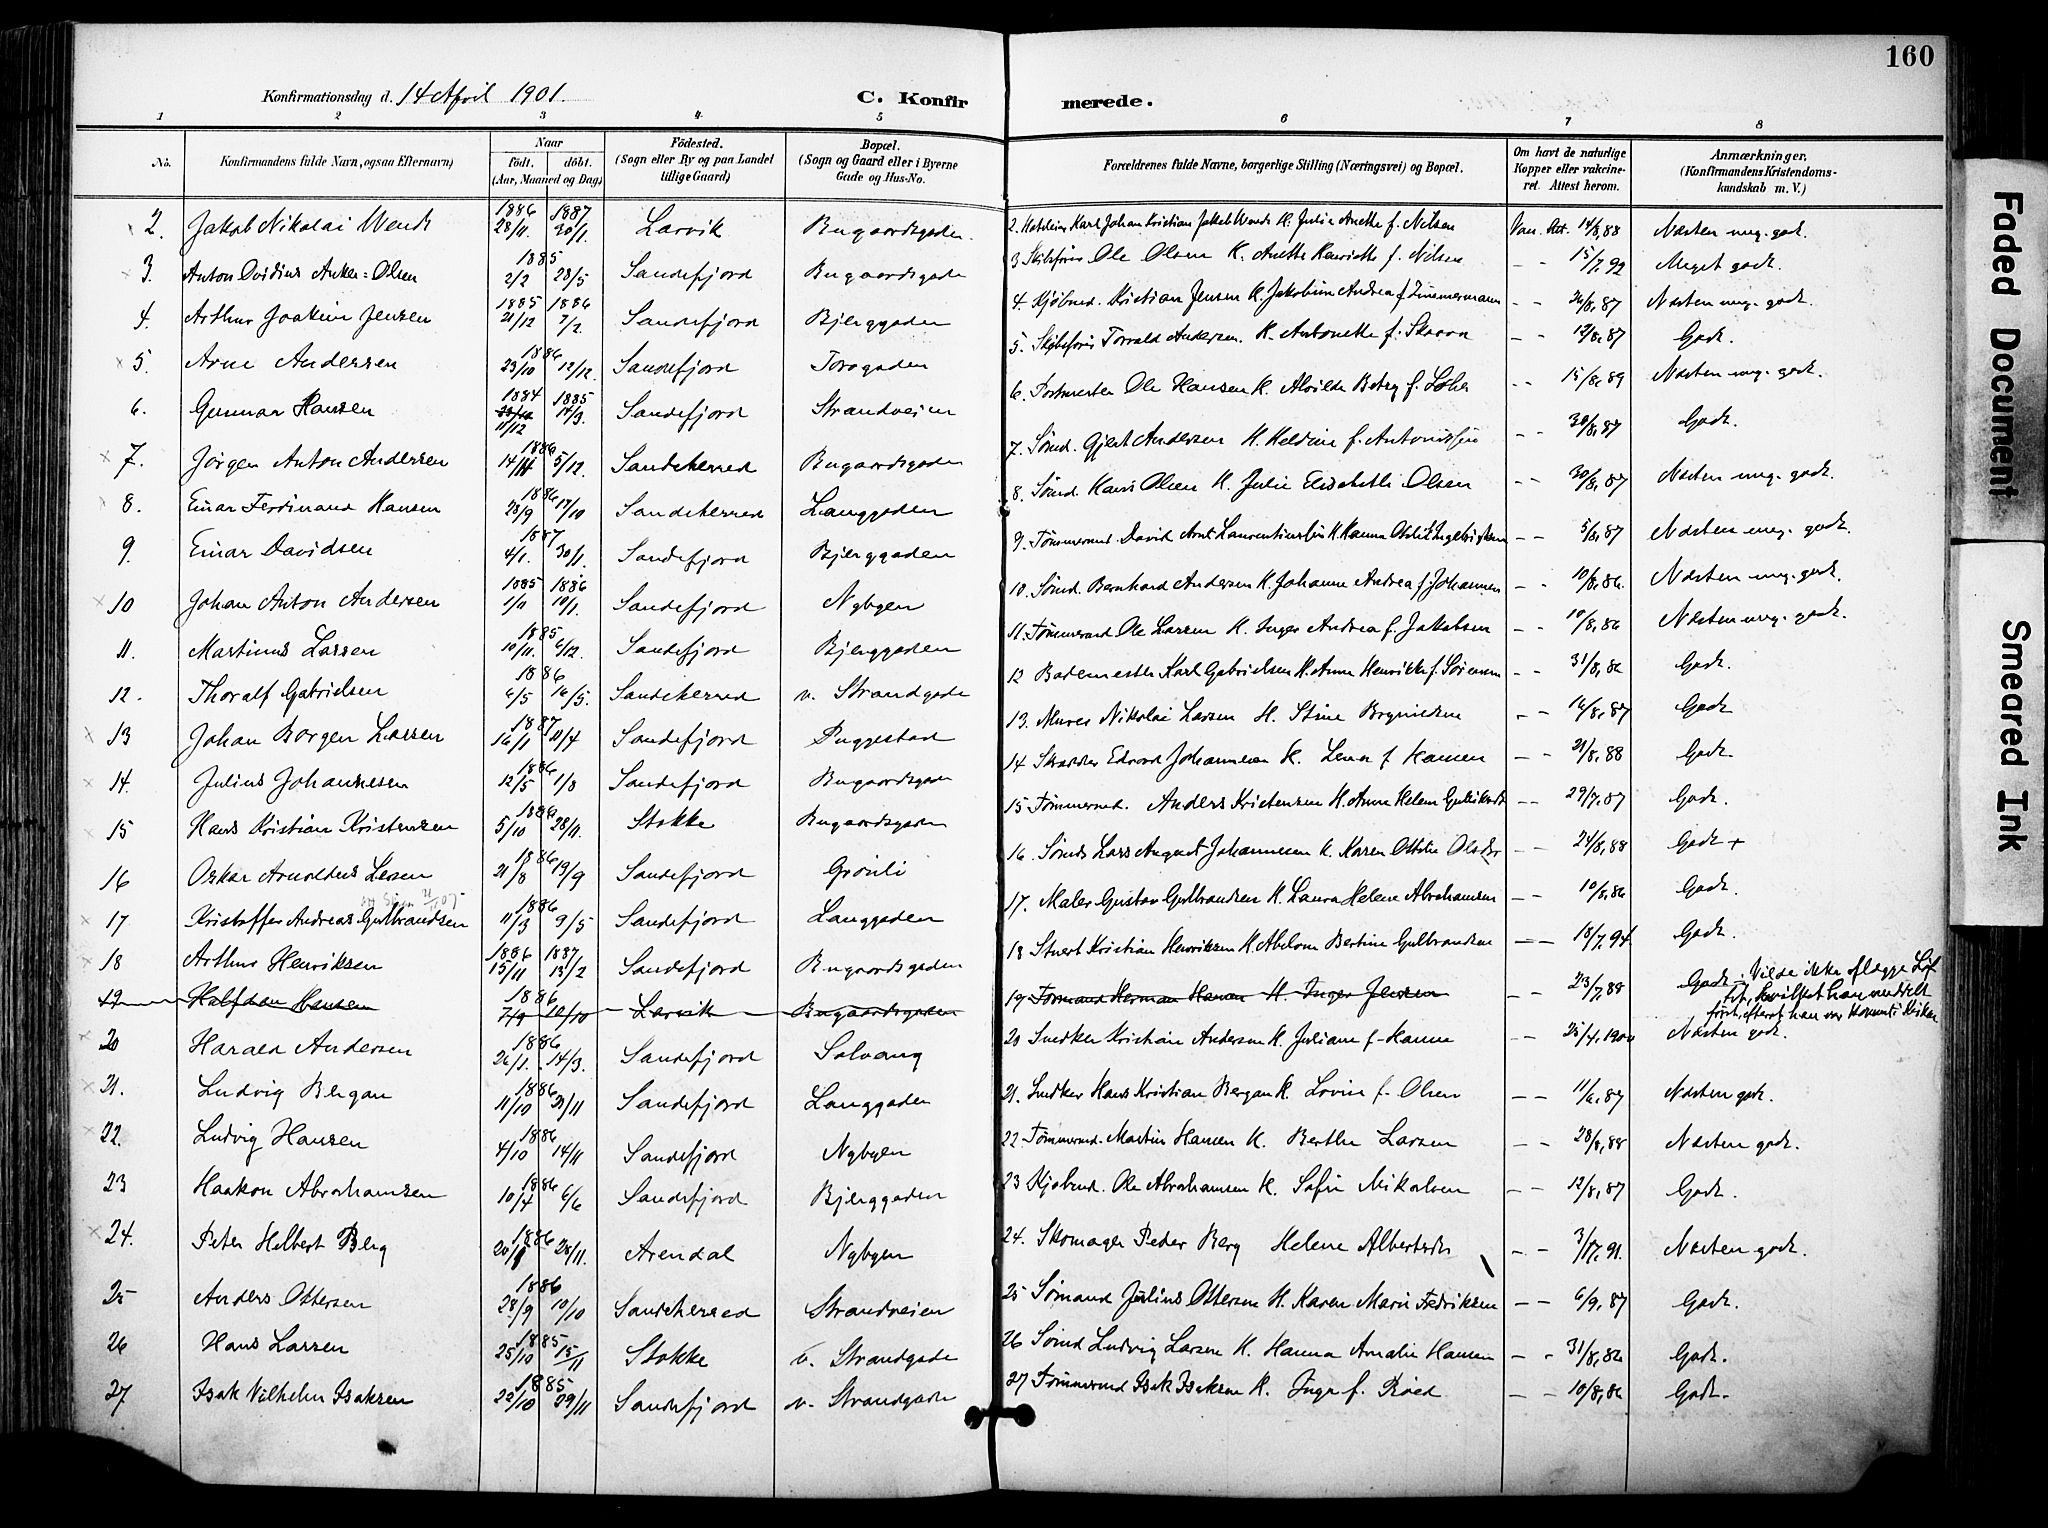 160
Konfirmationsdag d. 14 April 1901.
C. Konfirmerede.
1 2 3 4 5 6 7 8
No. Konfirmandens fulde Navn, ogsaa Efternavn) Naar født. døbt. (Aar, Maaned og Dag) Födested. (Sogn eller By og paa Landet tillige Gaard) Bopæl. (Sogn og Gaard eller i Byerne Gade og Hus-No. Forældrenes fulde Navne, borgerlige Stilling (Næringsvei) og Bopæl. Om havt de naturlige Kopper eller vakcineret. Attest herom. Anmærkninger. (Konfirmandens Kristendomskundskab m. V.)
2. Jakob Nikolai Wendt 1886 28/11. 1887 30/1. Larvik Bugaardsgaden. 2. Karl Johan Kristian Jakob Wendt H. Julie Anette f. Nilsen Vac. Att. 14/8,88 Næsten meg. godt.
3. Anton Ovidius Anker-Olsen 1885 2/2 28/5 Sandefjord Bugaardsgade 3 Skibsfører Ole Olsen H. Anette Henriette f. Nilsen - - 15/7,92 Meget godt.
4. Arthur Joakim Jensen 1885 21/12 1886 7/2. Sandefjord Bjerggaden 4. Kjøbmd. Kristian Jensen H. Jakobine Andrea f. Zimmermann - - 26/8,87 Næsten meg. godt.
5. Arne Andersen 1886 23/10 12/12. Sandefjord Torvgaden 5. Skibsfører Torvald Andersen H. Antonette f. - - 12/8,87 Godt.
6. Gunnar Hansen 1884 11/12 1885 14/3. Sandefjord Strandveien 6. Ole Hansen H. Alvilde f. - - 15/8,89 Næsten meg. godt.
7. Jørgen Anton Andersen 1886 14/11 5/12. Sandeherred Bugaardsgaden 7. Sømd. Gjert Andersen H. Heldine f. - - 30/8,87 Godt.
8. Einar Ferdinand Hansen 1886 28/9 17/10 Sandeherred Langgaden 8. Sømd. Hans Olsen H. Julie Elisabeth Olsen - - 30/8,87 Næsten meg. godt.
9. Einar Davidsen 1887 4/1. 30/1. Sandefjord Bjerggaden 9. Tømmermd. David Arnt H. Hanna - - 5/8,87 Næsten meg. godt.
10 Johan Anton Andersen 1885 1/11 1886 10/1. Sandefjord Nybyen 10. Sømd. Bernhard Andersen H. Johanne Andrea f. Johannesen - - 10/8,86. Næsten meg. godt.
11. Martinus Larsen 1885 10/11. 6/12. Sandefjord Bjerggaden 11. Tømmermd Ole Larsen H. Inger Andrea f. Jakobsen - - 10/8,86 Næsten meg. godt.
12. Thoralf Gabrielsen 1886 6/5 16/5. Sandeherred v. Strandgade 12 Bademester Karl Gabrielsen H. Anne Henrikke f. Sørensen - - 31/8,86 Godt.
13 Johan Borgen Larsen 1887 16/1 11/4 Sandefjord Puggestad 13. Murer Nikolai Larsen H. Stine - - 16/8,87 Godt
14. Julius Johannesen 1886 12/5 1/8 Sandefjord Bugaardsgad 14 Skrædder Edvard Johannesen H. Lena f. Hansen - - 21/8,88 Godt.
15 Hans Kristian Kristensen 1886 5/10 28/11. Stokke Bugaardsgaden 15 Tømmermd. Anders Kristensen H. Anne Helene - - 29/7,87 Godt.
16 Oskar Arnoldus Larsen 1886 21/8 19/9 Sandefjord Grønli 16. Sømd Lars August Johannesen H. Karen Ottilie - - 24/8,88 Godt +
17 Kristoffer Andreas Gulbrandsen 1886 11/3 9/5 Sandefjord Langgaden 17. Maler Gustav Gulbrandsen H. Laura Helene Abrahamsen - - 10/8,86 Godt.
18 Arthur Henriksen 1886 15/11 1887 13/2 Sandefjord Bugaardsgaden 18 Stuert Kristian Henriksen H. Abelone Bertine Gulbrandsen - - 18/7,94. Godt.
19 Halfdan Hansen 1886 7/9 10/10 Larvik Bugaardsgaden 19. Herman Hansen H. Inger Jensen - - 23/7,88 Godt. Vilde ikke aflægge Løftet, hvilket han meddelt først, efterat han var kommet i Kirken
20 Harald Andersen 1886 26/1. 14/3. Sandefjord Solvang 20 Snedker Kristian Andersen H. Juliane f. Hanne - - 25/4,1900 Næsten godt.
21. Ludvig Bergan 1886 11/10 21/11 Sandefjord Langgaden 21. Snedker Hans Kristian Bergan H. Lovise f. Olsen - - 11/6,87 Næsten godt.
22. Ludvig Hansen 1886 4/10 14/11 Sandefjord Nybyen 22. Tømmermd. Martin Hansen H. Berthe Larsen - - 28/8,88 Næsten godt.
23 Haakon Abrahamsen 1886 10/4 6/6 Sandefjord Bjerggaden 23 Kjøbmd. Ole Abrahamsen H. Sofie Mikalsen - - 12/8,87 Godt.
24. Peter Helbert Berg 1886 28/11. Arendal Nybyen 24. Skomager Peder Berg Helene Albertsdtr - - Næsten godt.
25 Anders Ottersen 1886 28/9 10/10 Sandeherred Strandveien 25 Sømand Julius Ottersen H. Karen Marie Fredriksen - - 6/9,87 Godt.
26 Hans Larsen 1885 25/10 15/11 Stokke v. Strandgade 26 Sømd Ludvig Larsen H. Hanna Amalie Hansen - - 31/8,86 Godt.
27 Isak Vilhelm Isaksen 1885 22/10 29/11 Sandefjord v. Strandgade 27 Tømmermd Isak Isaksen H. Inger f. Røed - - 10/8,86 Godt.
Faded Document
Smeared Ink